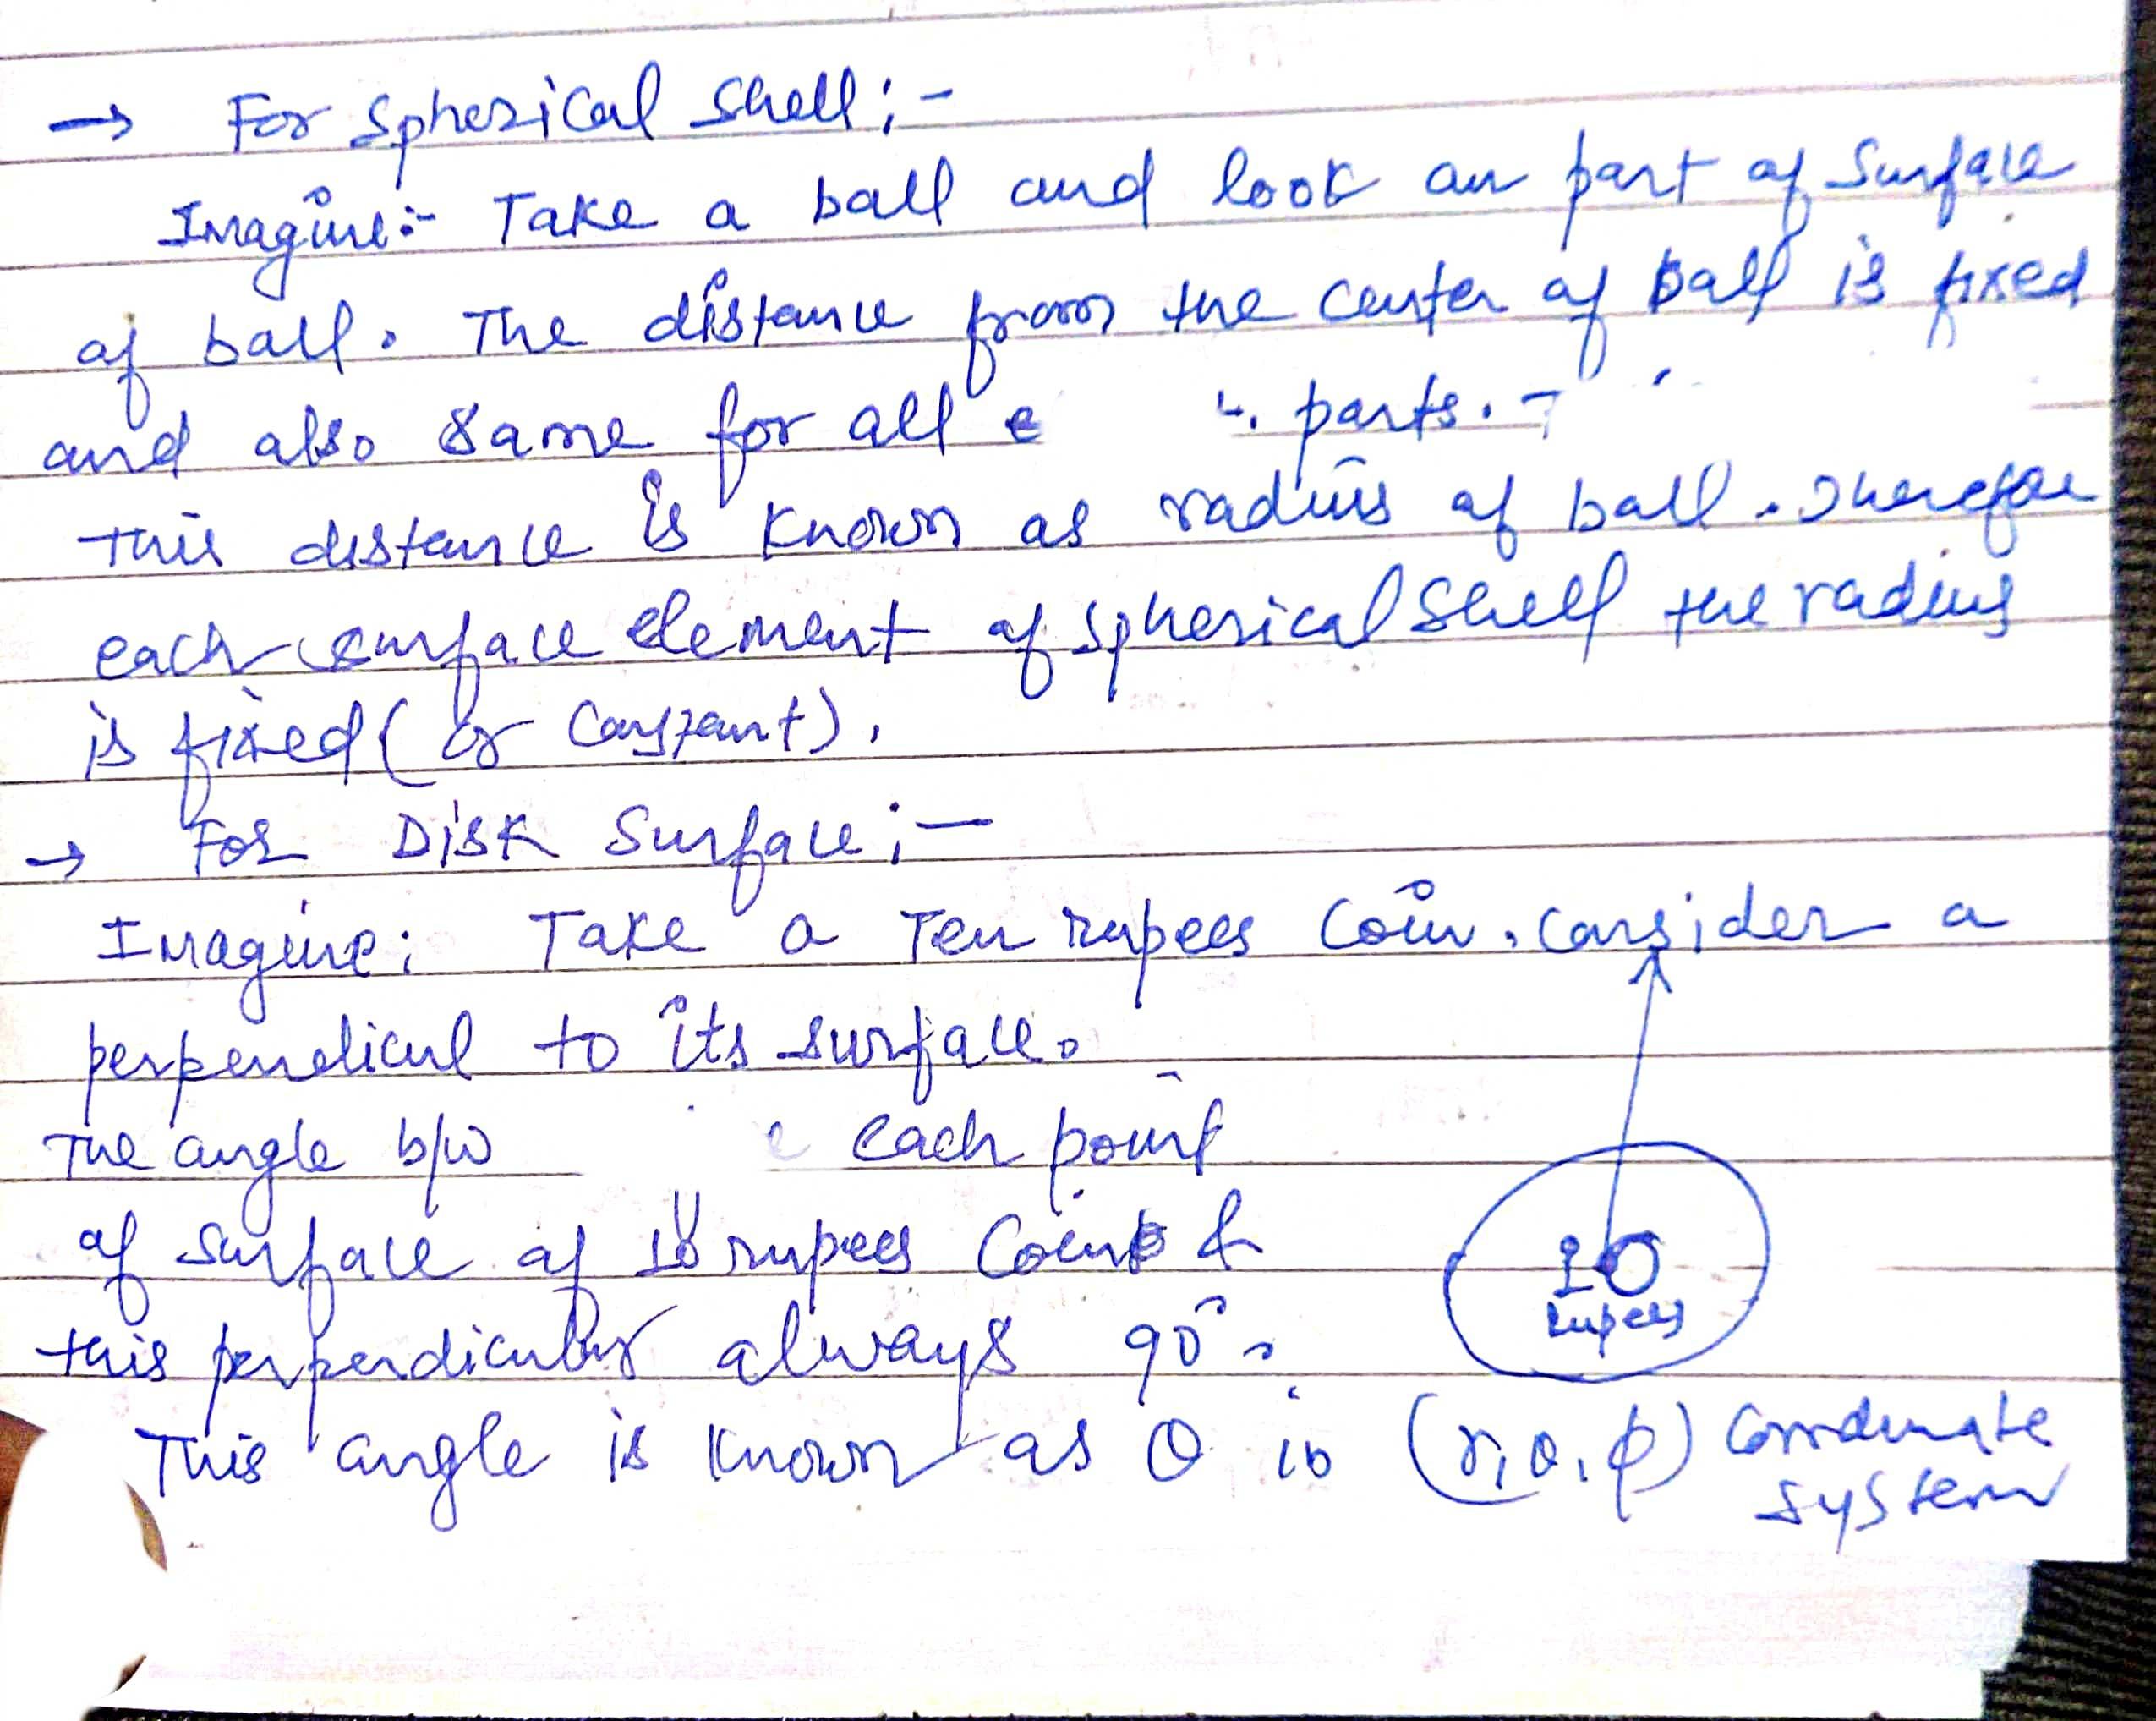 → For Spherical Shell:-
Imagine:- Take a ball and look an part of Surface
of ball. The distance from the center of ball is fixed
and also same for all parts.
this distance is known as radius of ball. Therefore
each surface element of spherical shell the radius
is fixed (or constant).
→ For Disk Surface:-
Imagine: Take a Ten rupees coin. consider a
perpendicul to its surface.
The angle b/w each point
of surface of 10 rupees coin &
this perpendicular always 90°.
This angle is known as θ in (r, θ, φ) coordinate
system
10
rupees